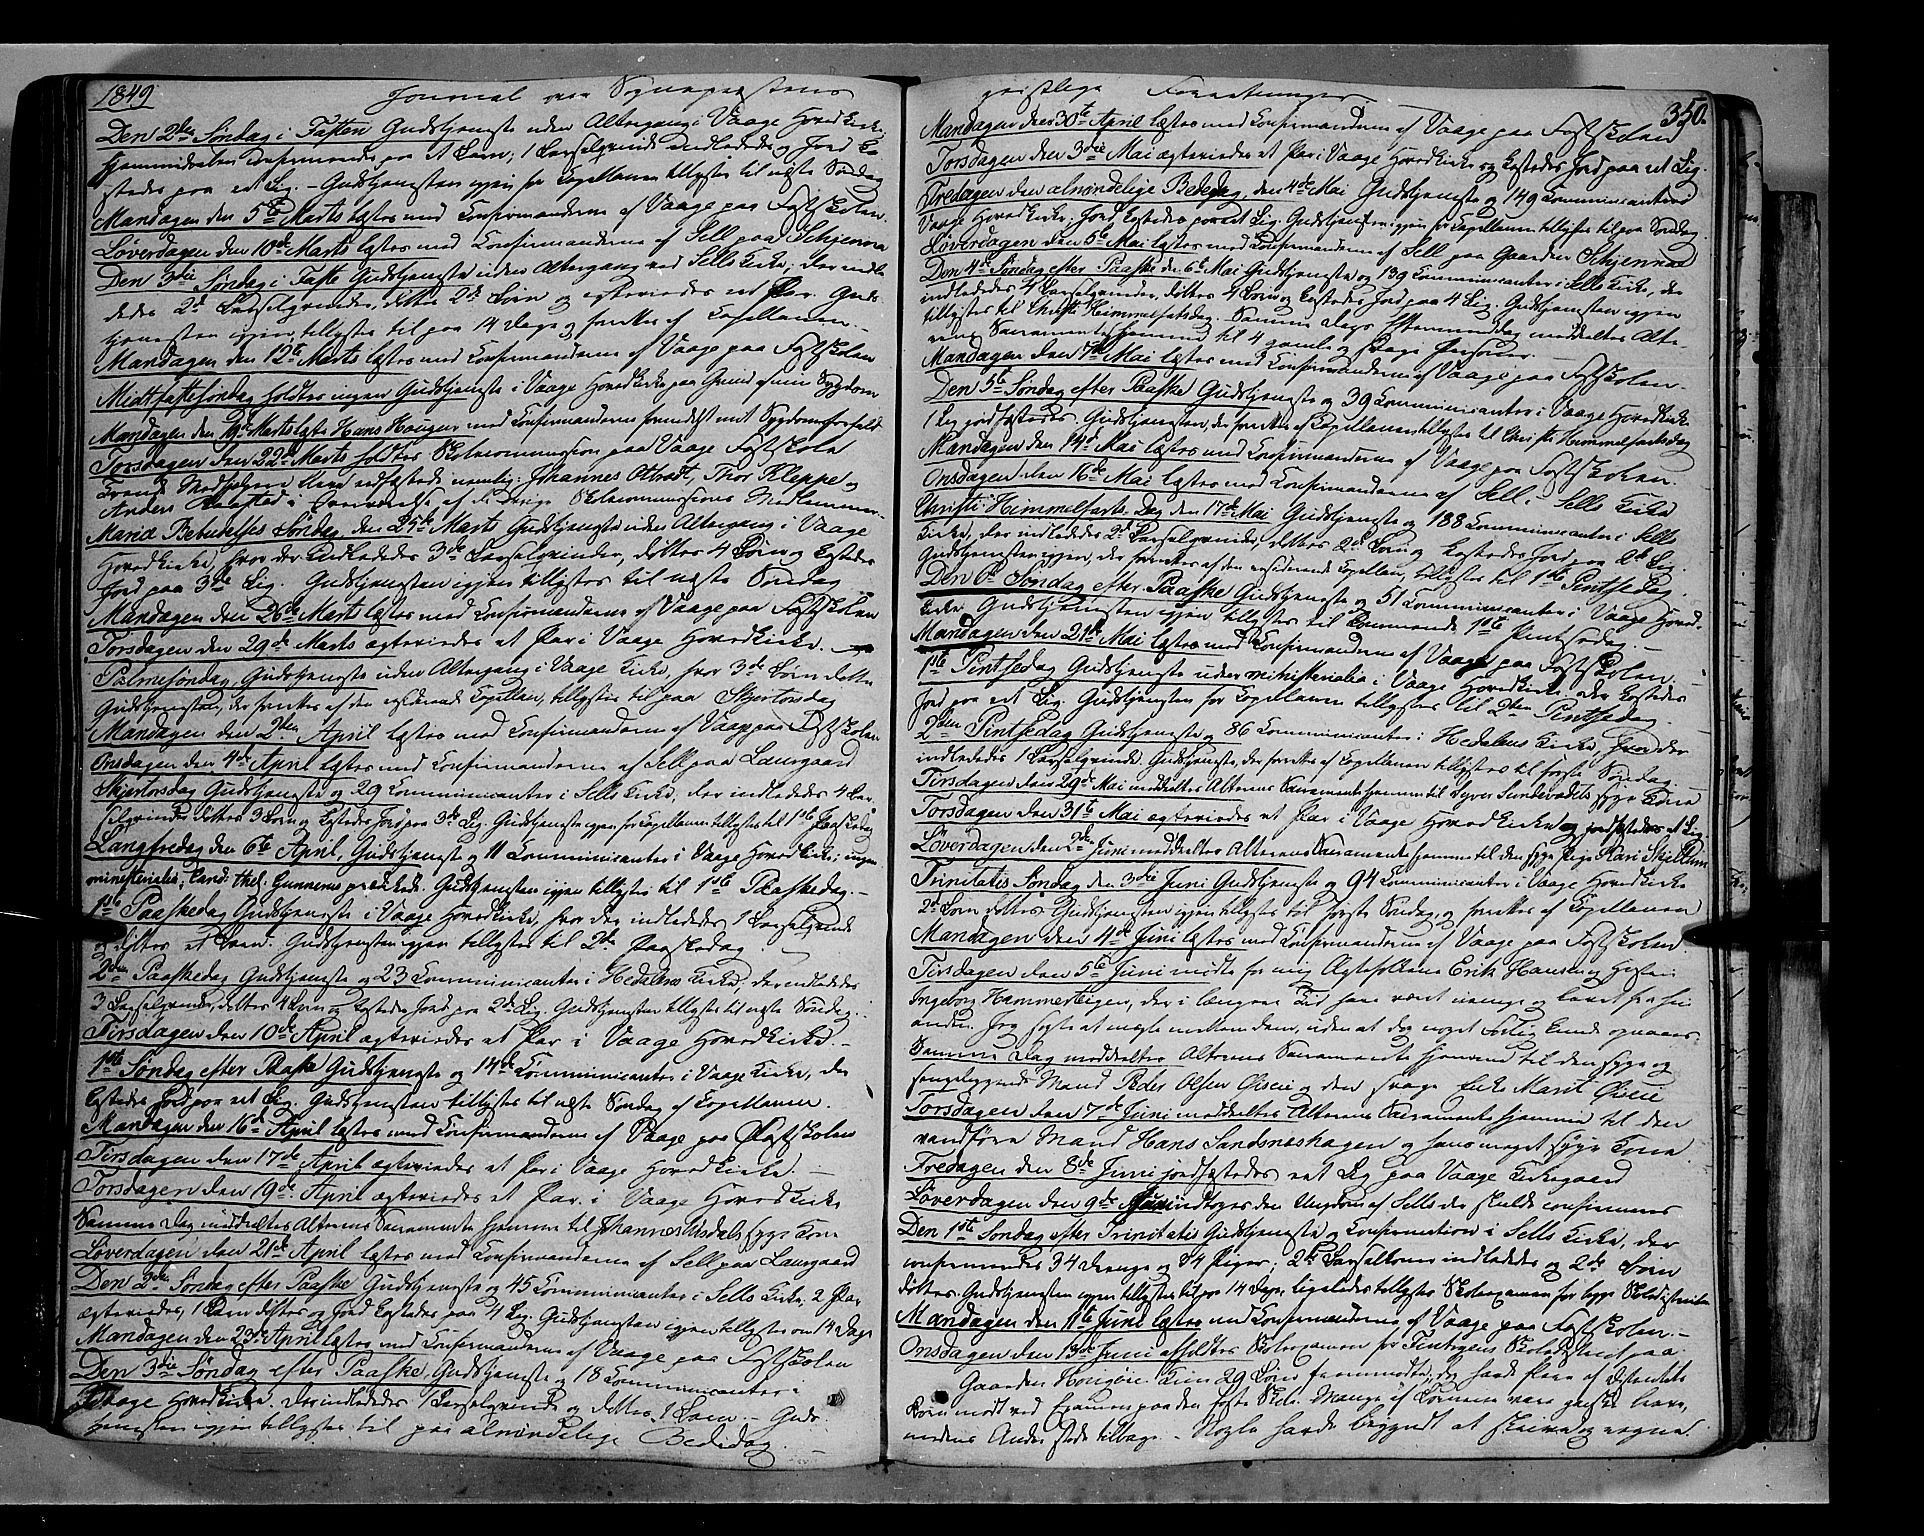 1849
Journal over Sognepræstens
Den 2den Søndag i Fasten Gudstjeneste uden Altergang i Vaage Hovedkirke;
stedes paa et Lig. – Gudstjenesten igjen for Capellanen tillystes til næste Søndag
Mandagen den 5te Marts læstes med Confirmanderne af Vaage paa Fastskolen.
Løverdagen den 10de Marts læstes med Confirmanderne af Sell paa Schjenna
Den 3die Søndag i Faste Gudstjeneste uden Altergang ved Sells Kirke; der indle
dedes 2de Barselqvinder, døbtes 2de Børn og egteviedes et Par. Guds
tjenesten igjen tillystes til paa 14 Dage og forrettes af Capellanen. –
Mandagen den 12te Marts læstes med Confirmanderne af Vaage paa Fastskolen
Midtfastesøndag holdtes ingen Gudstjeneste i Vaage Hovedkirke paa Grund af min Sygdom
Mandagen den 19de Marts læste Hans Hougen med Confirmanderne formedelst mit Sygdomsforfald
Torsdagen den 22de Marts holdtes Skolecommission paa Vaage Fastskole
nemlig: Johannes Ottredt, Thor Kleppe og
Anders i Overværelse af de øvrige Skolecommissions Medlemmer. –
Mariæ Bebudelses Søndag, den 25de Marts Gudstjeneste uden Altergang i Vaage
Hovedkirke, hvor der indledtes 3de Barselqvinder, døbtes 4 Børn og kastedes
Jord paa 3de Lig. Gudstjenesten igjen tillystes til næste Søndag
Mandagen den 26de Marts læstes med Confirmanderne af Vaage paa Fastskolen
Torsdagen den 29de Marts egteviedes et Par i Vaage Hovedkirke. –
Palmesøndag, Gudstjeneste uden Altergang i Vaage Kirke, hvor 3de Børn døbtes
Gudstjenesten, der forrettes af den residerende Capellan, tillystes til paa Skjertorsdag
Mandagen den 2den April læstes med Confirmanderne af Vaage paa Fastskolen
Onsdagen den 4de April læstes med Confirmanderne af Sell paa Laurgaard
Skjertorsdag Gudstjeneste og 29 Communicanter i Sells Kirke, der indledtes 4 Bar-
selqvinder, døbtes 3 Børn og kastedes Jord paa 3de Lig. Gudstjeneste igjen for Capellanen tillystes til 1ste Paaskedag
Langfredag den 6te April, Gudstjeneste og 11 Communicanter i Vaage Hovedkirke; ingen
ministerialia; Cand. theol. Gunnerus prædikede. Gudstjenesten igjen tillystes til 1ste Paaskedag. –
1ste Paaskedag Gudstjeneste i Vaage Hovedkirke, hvor der indledtes 1 Barselqvinde
og døbtes et Barn. Gudstjenesten igjen tillystes til 2den Paaskedag
2den Paaskedag Gudstjeneste og 23 Communicanter i Hedalens Kirke; der indledtes
3 Barselqvinder, døbtes 4 Børn og kastedes Jord paa 2de Lig. Gudstjenesten tillystes til næste Søndag. –
Tirsdagen den 10de April egteviedes et Par i Vaage Hovedkirke. –
1ste Søndag efter Paaske Gudstjeneste og 14de Communicanter i Vaage Kirke, der
kastedes Jord paa et Lig. Gudstjenesten tillystes til næste Søndag af Capellanen.
Mandagen den 16de April læstes med Confirmanderne af Vaage paa Fastskolen
Tirsdagen den 17de April egteviedes et Par i Vaage Hovedkirke. –
Torsdagen den 19de April egteviedes et Par i Vaage Hovedkirke
Samme Dag meddeltes Alterens Sacramente hjemme til Johannes Uldals syge Kone
Løverdagen den 21de April læstes med Confirmanderne af Sell paa Laurgaard
Den 2den Søndag efter Paaske Gudstjeneste og 45 Communicanter i Sells Kirke; 2 Par
egteviedes, 1 Barn døbtes og Jord kastedes paa 4 Lig. Gudstjenesten igjen tillystes om 14 Dage
Mandagen den 23de April læstes med Confirmanderne af Vaage paa Fastskolen
Den 3die Søndag efter Paaske, Gudstjeneste og 18 Communicanter
i Vaage Hovedkirke. Der indledtes 1 Barselqvinde og døbtes 1 Barn. – Guds-
tjenesten igjen tillystes til paa almindelige Bededag. –
geistlige Forretninger.
350.
Mandagen den 30te April læstes med Confirmanderne af Vaage paa Fastskolen
Torsdagen den 3die Mai egteviedes et Par i Vaage Hovedkirke og kastedes Jord paa et Lig.
Fredagen den almindelige Bededag, den 4de Mai Gudstjeneste og 149 Communicanter i
Vaage Hovedkirke; Jord kastedes paa et Lig. Gudstjenesten igjen for Capellanen tillystes til paa Søndag
Løverdagen den 5te Mai læstes med Confirmanderne af Sell paa Gaarden Schjenna
Den 4de Søndag efter Paaske den 6te Mai Gudstjeneste og 139 Communicanter i Sells Kirke, der
indledtes 4 Barselqvinder, døbtes 4 Børn og kastedes Jord paa 4 Lig. Gudstjenesten igjen
tillystes til Christi Himmelfartsdag. Samme Dags Eftermiddag meddeltes Alte-
rens Sacramente hjemme til 4 gamle og svage Personer. –
Mandagen den 7de Mai læstes med Confirmanderne af Vaage paa Fastskolen. –
Den 5te Søndag efter Paaske Gudstjeneste og 39 Communicanter i Vaage Hovedkirke.
1 Lig jordfæstedes. Gudstjenesten, der forrettes af Capellanen tillystes til Christi Himmelfartsdag
Mandagen den 14de Mai læstes med Confirmanderne af Vaage paa Fastskolen.
Onsdagen den 16de Mai læstes med Confirmanderne af Sell i Sells Kirke
Christi Himmelfarts Dag den 17de Mai Gudstjeneste og 188 Communicanter i Sells
Kirke, der indledtes 2de Barselqvinder, døbtes 2de Børn og kastedes Jord paa 2de Lig.
Gudstjenesten igjen, der forrettes af den residerende Capellan, tillystes til 1ste Pintsedag.
Den 6te Søndag efter Paaske Gudstjeneste og 51 Communicanter i Vaage Hoved-
kirke Gudstjenesten igjen tillystes til kommende 1ste Pintsedag. –
Mandagen den 21de Mai læstes med Confirmanderne af Vaage paa Fastskolen. –
1ste Pintsedag Gudstjeneste uden ministerialia i Vaage Hovedkirke. der kastedes
Jord paa et Lig. Gudstjenesten for Capellanen tillystes til 2den Pintsedag.
2den Pintsedag Gudstjeneste og 86 Communicanter i Hedalens Kirke, hvor der
indledtes 1 Barselqvinde. Gudstjeneste, der forrettes af Capellanen tillystes til første Søndag
Tirsdagen den 29de Mai meddeltes Alterens Sacramente hjemme til Syver Sundevoldets syge Kone
Torsdagen den 31te Mai egteviedes et Par i Vaage Hovedkirke og jordfæstedes et Lig.
Løverdagen den 2den Juni meddeltes Alterens Sacramente hjemme til den syge Pige Kari Skjellum
Trinitatis Søndag den 3die Juni Gudstjeneste og 94 Communicanter i Vaage Hovedkirke
2de Børn døbtes. Gudstjenesten igjen tillystes til første Søndag, og forrettes af Capellanen
Mandagen den 4de Juni læstes med Confirmanderne af Vaage paa Fastskolen
Tirsdagen den 5te Juni mødte for mig Ægtefolkene Erik Hansen og Hustru
Ingeborg Hammersteigen, der i længere Tid have været uenige og levet fra hin
anden. Jeg søgte at megle mellem dem, uden at dog noget Forlig kunde opnaaes.
Samme Dag meddeltes Alterens Sacramente hjemme til den syge og
sengeliggende Mand Peder Olsen Øieie og den svage Enke Marit Øieie
Torsdagen den 7de Juni meddeltes Alterens Sacramente hjemme til den
vanføre Mand Hans Sandsneshagen og hans meget syge Kone.
Fredagen den 8de Juni jordfæstedes et Lig paa Vaage Kirkegaard
Løverdagen den 9de Juni indtoges den Ungdom af Sell der skulde confirmeres
Den 1ste Søndag efter Trinitatis Gudstjeneste og Confirmation i Sells Kirke, der
confirmeredes 34 Drenge og 34 Piger; 2de Barselkoner indledtes og 2de Børn
døbtes. Gudstjenesten igjen tillystes til paa 14 Dage, ligeledes tillystes Skoleexamen for begge Skoledistricter
Mandagen den 11te Juni læstes med Confirmanderne af Vaage paa Fastskolen. –
Onsdagen den 13de Juni afholdtes Skoleexamen for Skoledistrict paa
Gaarden Kun 29 Børn fremmødte; dog havde flere af Distriktets
Børn mødt ved Examen paa den faste Skole. Mange af Børnene vare ganske brave,
medens Andre stode tilbage. – Nogle havde begyndt at skrive og regne.